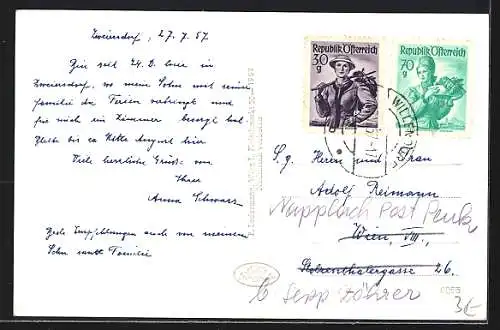 Zweiersdorf, 27.7.57.
Bin seit 24. d. hier in
Zweiersdorf, wo mein Sohn mit seiner
Familie die Ferien verbringt und
für mich ein Zimmer besorgt hat.
Bleibe bis ca Mitte August hier
Viele herzliche Grüsse von
Ihrer
Anna Schwarz
Viele Empfehlungen auch von meinem
Sohn samt Familie
Republik Österreich
30
g
Republik Österreich
70
g
S. g. Herrn und Frau
Adolf Reimann
Napplach Post Penk
Wien, VIII.,
Stolzenthalergasse 26.
Sepp Zährer
3€